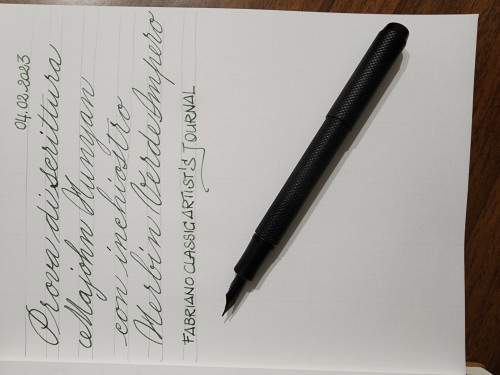 04.02.2023
Prova di scrittura
Majohn Kunyan
con inchiostro
Herbin Verde Impero
FABRIANO CLASSIC ARTIST'S JOURNAL